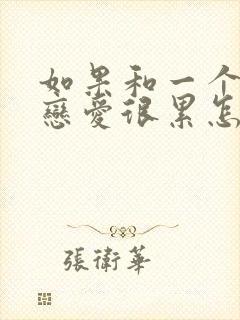 如果和一个
戀愛很累怎
張衛華